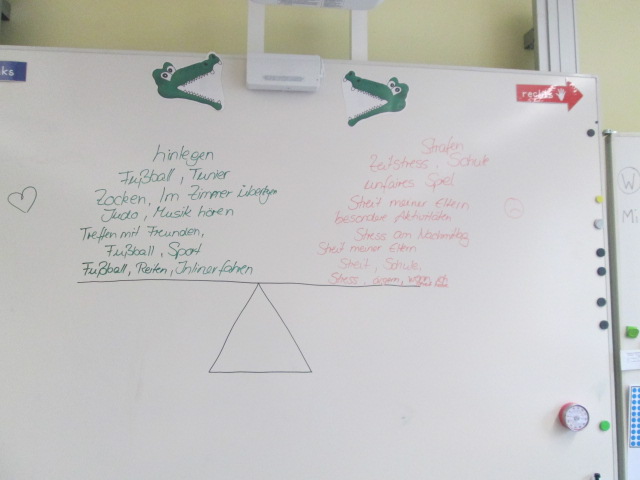 ks
rechts
hinlegen
Fußball, Tunier
Zocken, Im Zimmer überlegen
Judo, Musik hören
Treffen mit Freunden,
Fußball, Sport
Fußball, Reiten, Inlinerfahren
Strafen
Zeitstress, Schule
unfaires Spiel
Streit meiner Eltern
besondere Aktivitäten
Stress am Nachmittag
Streit meiner Eltern
Streit, Schule,
Stress,
W
Mi